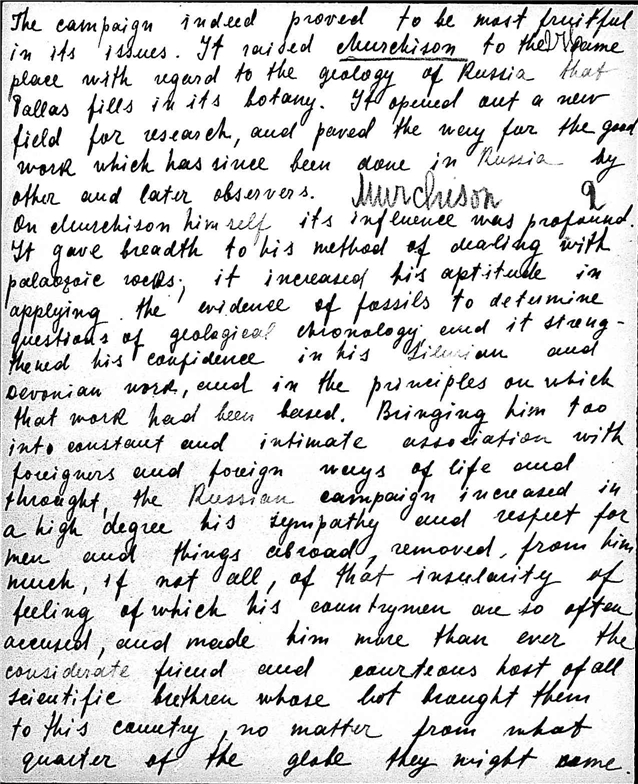 The campaign indeed proved to be most fruitful
in its issues. It raised Murchison to the same
place with regard to the geology of Russia that
Pallas fills in its botany. It opened out a new
field for research, and paved the way for the good
work which has since been done in Russia by
other and later observers. Murchison 2
On Murchison himself its influence was profound.
It gave breadth to his method of dealing with
palaeozoic rocks; it increased his aptitude in
applying the evidence of fossils to determine
questions of geological chronology and it streng-
thened his confidence in his Silurian and
Devonian work, and in the principles on which
that work had been based. Bringing him too
into constant and intimate association with
foreigners and foreign ways of life and
throught, the Russian campaign increased in
a high degree his sympathy and respect for
men and things abroad, removed, from him
much, if not all, of that insularity of
feeling of which his countrymen are so often
accused, and made him more than ever the
considerate friend and courteous host of all
scientific brethren whose lot brought them
to this country, no matter from what
quarter of the globe they might come.